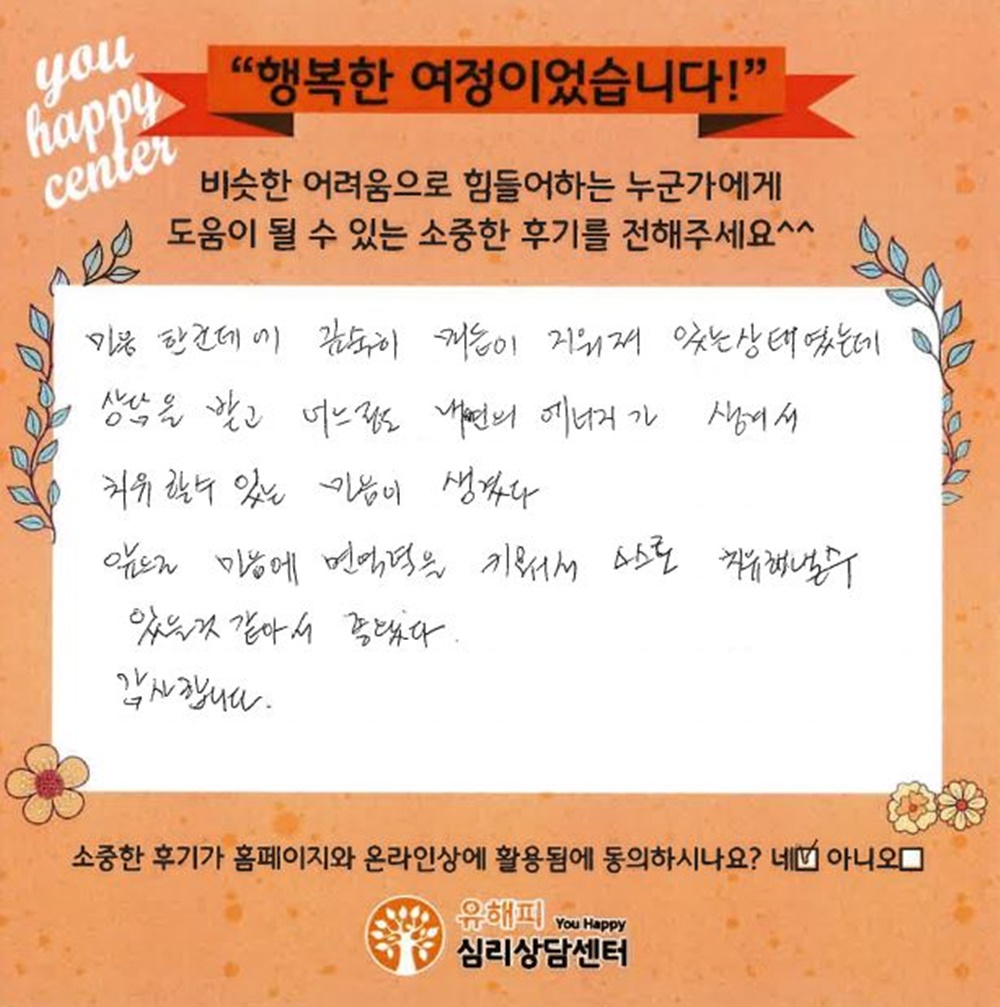 you
happy
center
“행복한 여정이었습니다!”
비슷한 어려움으로 힘들어하는 누군가에게
도움이 될 수 있는 소중한 후기를 전해주세요^^
마음 한건데이 이 지워져 있는상태였는데
상담을 받고 어느정도 내면의 에너지가 생겨서
치유할수 있는 마음이 생겼다
앞으로 마음에 면역력을 키워서 스스로 치유해낼수
있을것 같아서 좋았다.
감사합니다.
소중한 후기가 홈페이지와 온라인상에 활용됨에 동의하시나요? 네☑ 아니오☐
유해피 You Happy
심리상담센터